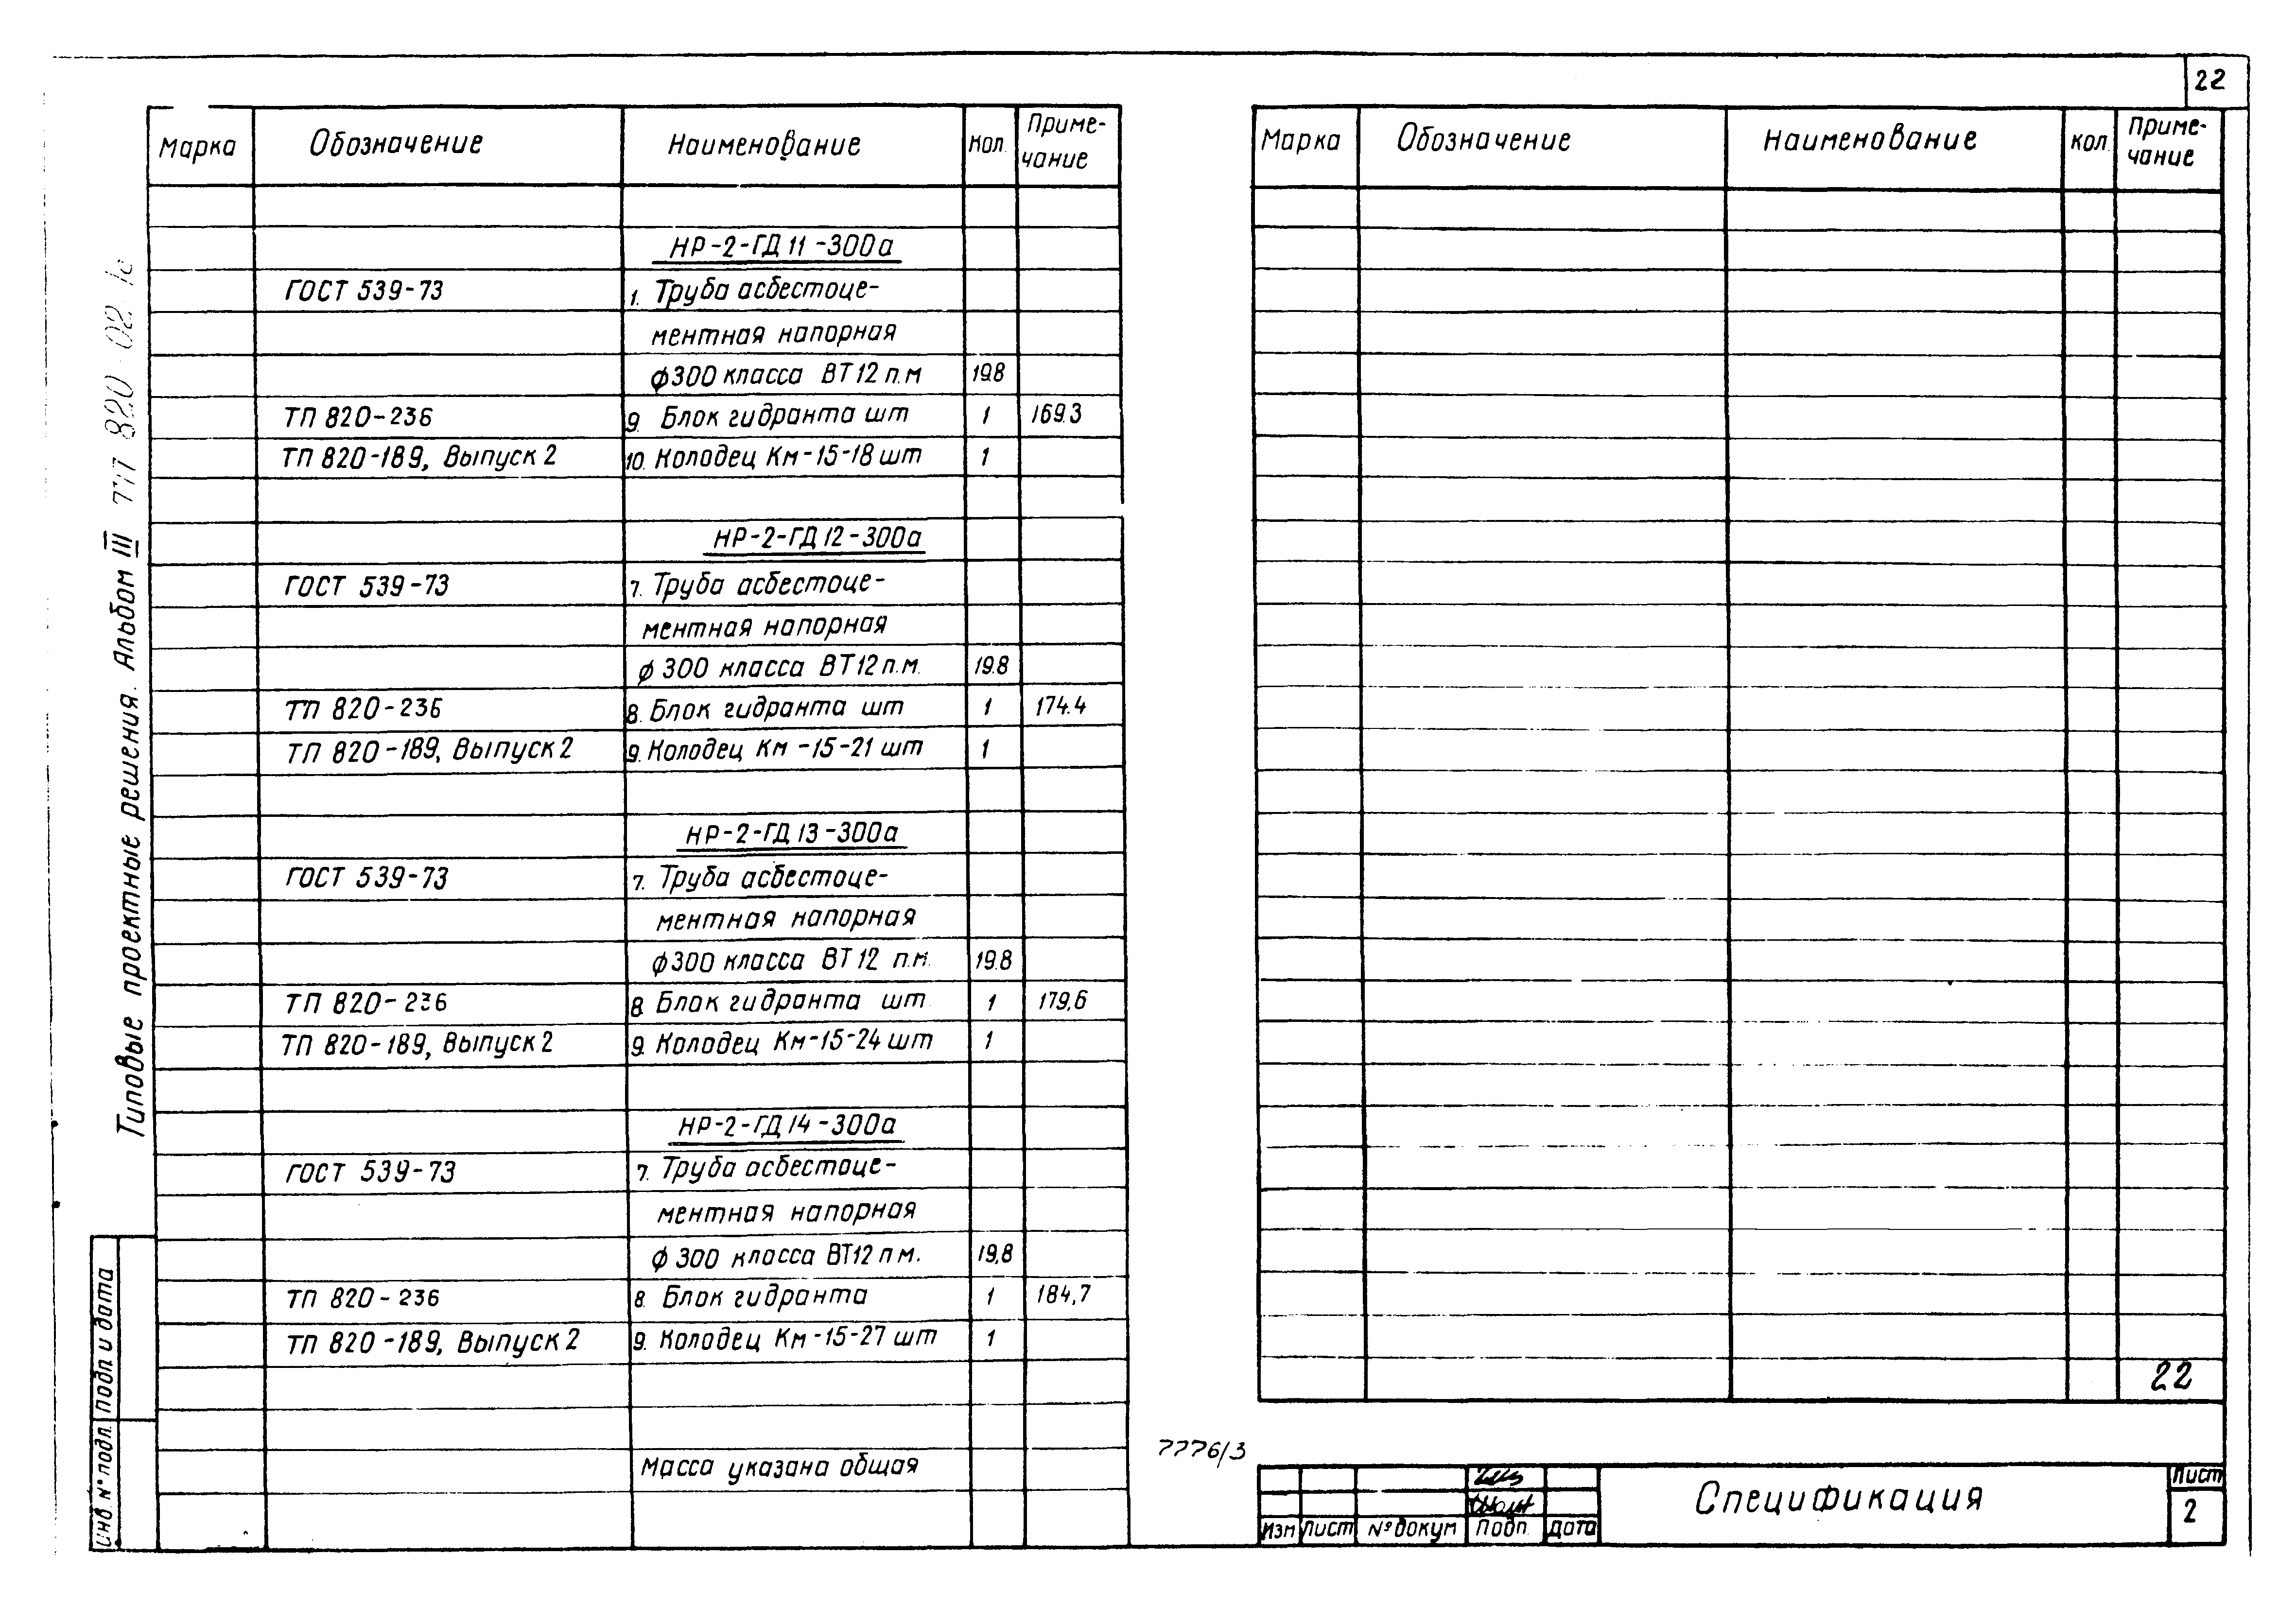 22
Марка Обозначение Наименование Кол. Приме-
чание
НР-2-ГД 11-300а
ГОСТ 539-73 1. Труба асбестоце-
ментная напорная
ф300 класса ВТ12 п.м 19.8
ТП 820-236 9. Блок гидранта шт 1 169.3
ТП 820-189, Выпуск 2 10. Колодец Км-15-18 шт 1
НР-2-ГД 12-300а
ГОСТ 539-73 7. Труба асбестоце-
ментная напорная
ф 300 класса ВТ12 п.м. 19.8
ТП 820-236 8. Блок гидранта шт 1 174.4
ТП 820-189, Выпуск 2 9. Колодец Км-15-21 шт 1
НР-2-ГД 13-300а
ГОСТ 539-73 7. Труба асбестоце-
ментная напорная
ф300 класса ВТ12 п.м. 19.8
ТП 820-236 8. Блок гидранта шт 1 179,6
ТП 820-189, Выпуск 2 9. Колодец Км-15-24 шт 1
НР-2-ГД 14-300а
ГОСТ 539-73 7. Труба асбестоце-
ментная напорная
ф 300 класса ВТ12 п м. 19,8
ТП 820-236 8. Блок гидранта 1 184,7
ТП 820-189, Выпуск 2 9. Колодец Км-15-27 шт 1
Масса указана общая
Типовые проектные решения. Альбом III ТП 820-02
Подп и дата
Инв. № подл.
Марка Обозначение Наименование кол. Приме-
чание
22
7776/3
Изм Лист № докум Подп. Дата
Спецификация
Лист
2